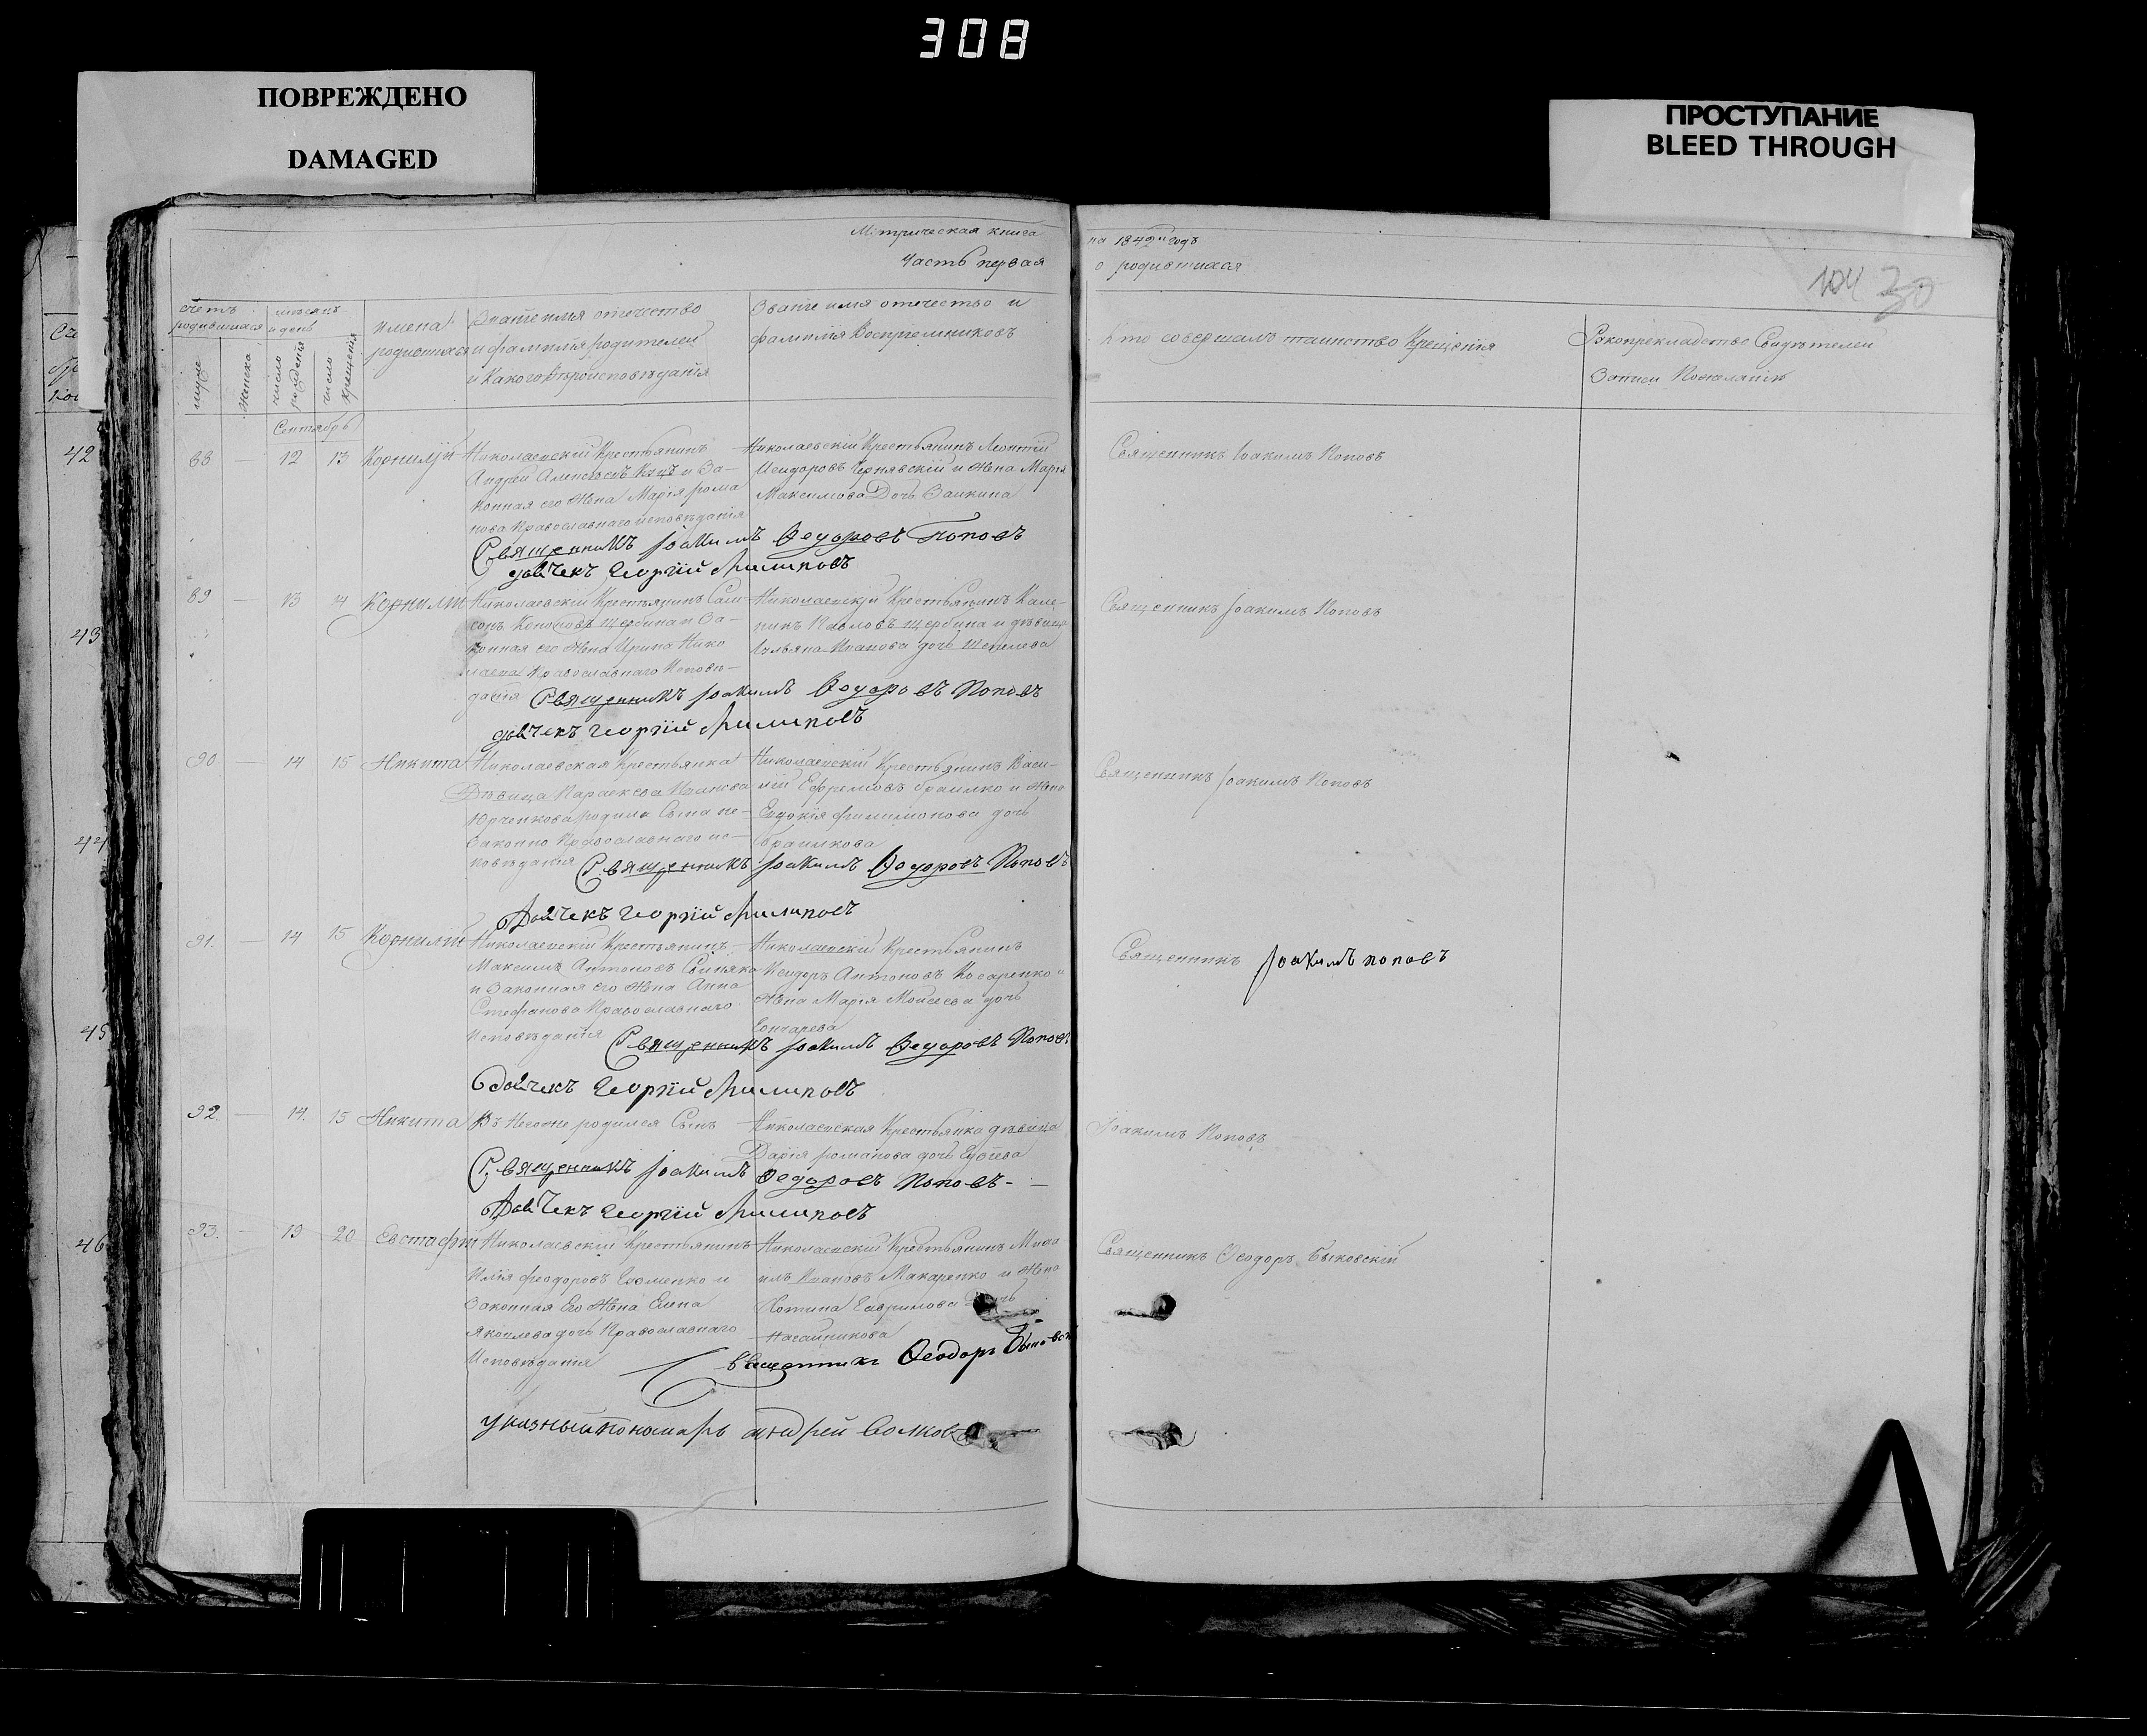 308
ПОВРЕЖДЕНО
DAMAGED
ПРОСТУПАНИЕ
BLEED THROUGH
Метрическая книга
Часть первая
на 1842й годъ
о родившихся
104 30
счетъ родившихся
мѣсяцъ и день
имена родившихся
Званіе имя отечество
и фамилія родителей
и Какого Вѣроисповѣданія
Званіе имя отечество и
фамилія Воспріемниковъ
Кто совершалъ таинство Крещенія
Рукоприкладство Свидѣтелей
Записи Пожеланію
муже
женска
число рожденія
число крещенія
Сентябрь
42
88 — 12 13 Корнилій
Николаевскій Крестьянинъ
Андрей Алексѣевъ и За-
конная его Жена Марія рома
нова Православнаго исповѣданія
Николаевскій Крестьянинъ Леонтій
Исидоровъ Чернявскій и Жена Марія
Максимова Дочь Заикина
Священникъ Іоакимъ Поповъ
Священникъ Іоакимъ Ѳедоровъ Поповъ
дьячекъ Георгій Филиповъ
43
89 — 13 14 Корнилій
Николаевскій Крестьянинъ Сам-
сонъ Кононовъ Щербина и За-
конная его Жена Ирина Нико
лаева Православнаго Исповѣ-
данія
Николаевскій Крестьянинъ Кале-
никъ Павловъ Щербина и дѣвица
Ульяна Иванова дочь Шепелева
Священникъ Іоакимъ Поповъ
Священникъ Іоакимъ Ѳедоровъ Поповъ
дьячекъ Георгій Филиповъ
44
90 — 14 15 Никита
Николаевская Крестьянка
Дѣвица Параскева Иванова
Юрченкова родила Сына не-
законно Православнаго ис-
повѣданія
Николаевскій Крестьянинъ Васи-
лій Ефремовъ Браилко и Жена
Евдокія Филимонова дочь
Браилкова
Священникъ Іоакимъ Поповъ
Священникъ Іоакимъ Ѳедоровъ Поповъ
Дьячекъ Георгій Филиповъ
45
91. — 14 15 Корнилій
Николаевскій Крестьянинъ
Максимъ Антоновъ Свиняко
и Законная его Жена Анна
Стефанова Православнаго
Исповѣданія
Николаевскій Крестьянинъ
Исидоръ Антоновъ Косаренко и
Жена Марія Моисеева дочь
Гончарева
Священникъ Іоакимъ поповъ
Священникъ Іоакимъ Ѳедоровъ Поповъ
дьячекъ Георгій Филиповъ
92. — 14. 15 Никита
родился Сынъ
Николаевская Крестьянка дѣвица
Дарія романова дочь
Іоакимъ Поповъ
Священникъ Іоакимъ Ѳедоровъ Поповъ
Дьячекъ Георгій Филиповъ
46
93. — 19 20 Евстафій
Николаевскій Крестьянинъ
Илія феодоровъ и
Законная Его Жена Елена
Яковлева дочь Православнаго
Исповѣданія
Николаевскій Крестьянинъ Миха
илъ Ивановъ Макаренко и Жена
Гаврилова Дочь
Священникъ Ѳеодоръ Быковскій
Священникъ Ѳеодоръ Быковскій
указный пономарь андрей Волковъ